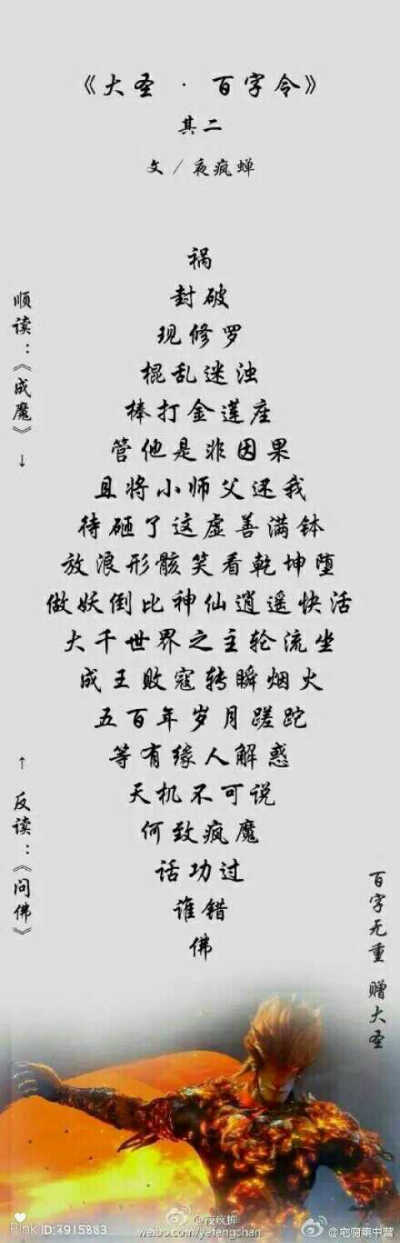 《大圣 · 百字令》
其二
文 / 夜疯蝉
祸
封破
现修罗
棍乱迷浊
棒打金莲座
管他是非因果
且将小师父还我
待砸了这虚善满钵
放浪形骸笑看乾坤堕
做妖倒比神仙逍遥快活
大千世界之主轮流坐
成王败寇转瞬烟火
五百年岁月蹉跎
等有缘人解惑
天机不可说
何致疯魔
话功过
谁错
佛
顺读：《成魔》↓
↑ 反读：《问佛》
百字无重 赠大圣
Pink ID:4915863
@夜疯蝉
weibo.com/yefengchan